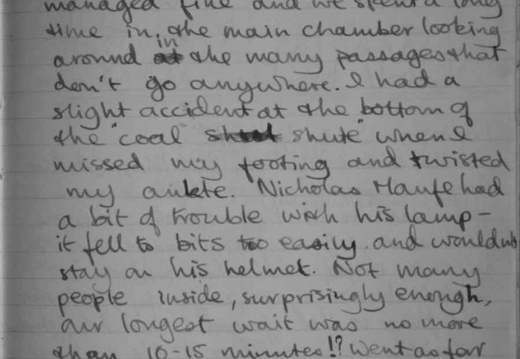 managed fine and we spent a long
time in the main chamber looking
around in the many passages that
don't go anywhere. I had a
slight accident at the bottom of
the "coal shute" when I
missed my footing and twisted
my ankle. Nicholas Haufe had
a bit of trouble with his lamp -
it fell to bits too easily and wouldn't
stay on his helmet. Not many
people inside, surprisingly enough,
our longest wait was no more
than 10-15 minutes!? Went as far